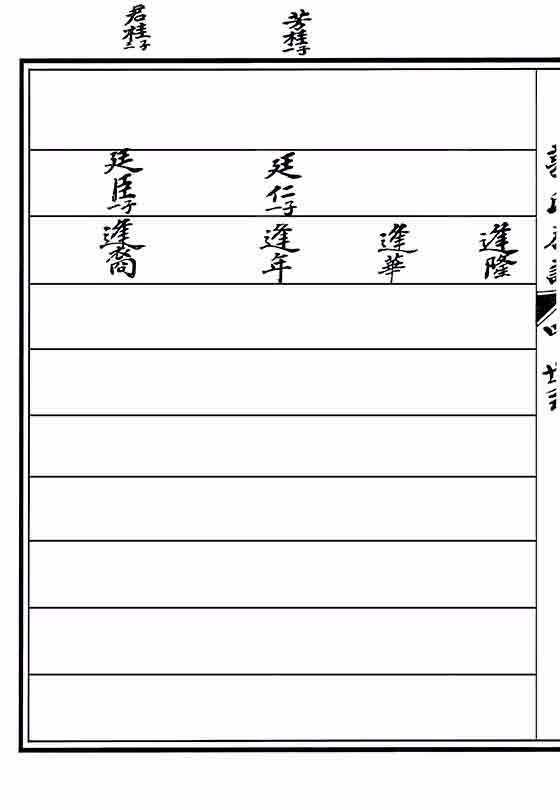 芳桂
一子
君桂
二子
廷仁
一子
廷臣
一子
逢隆
逢華
逢年
逢裔